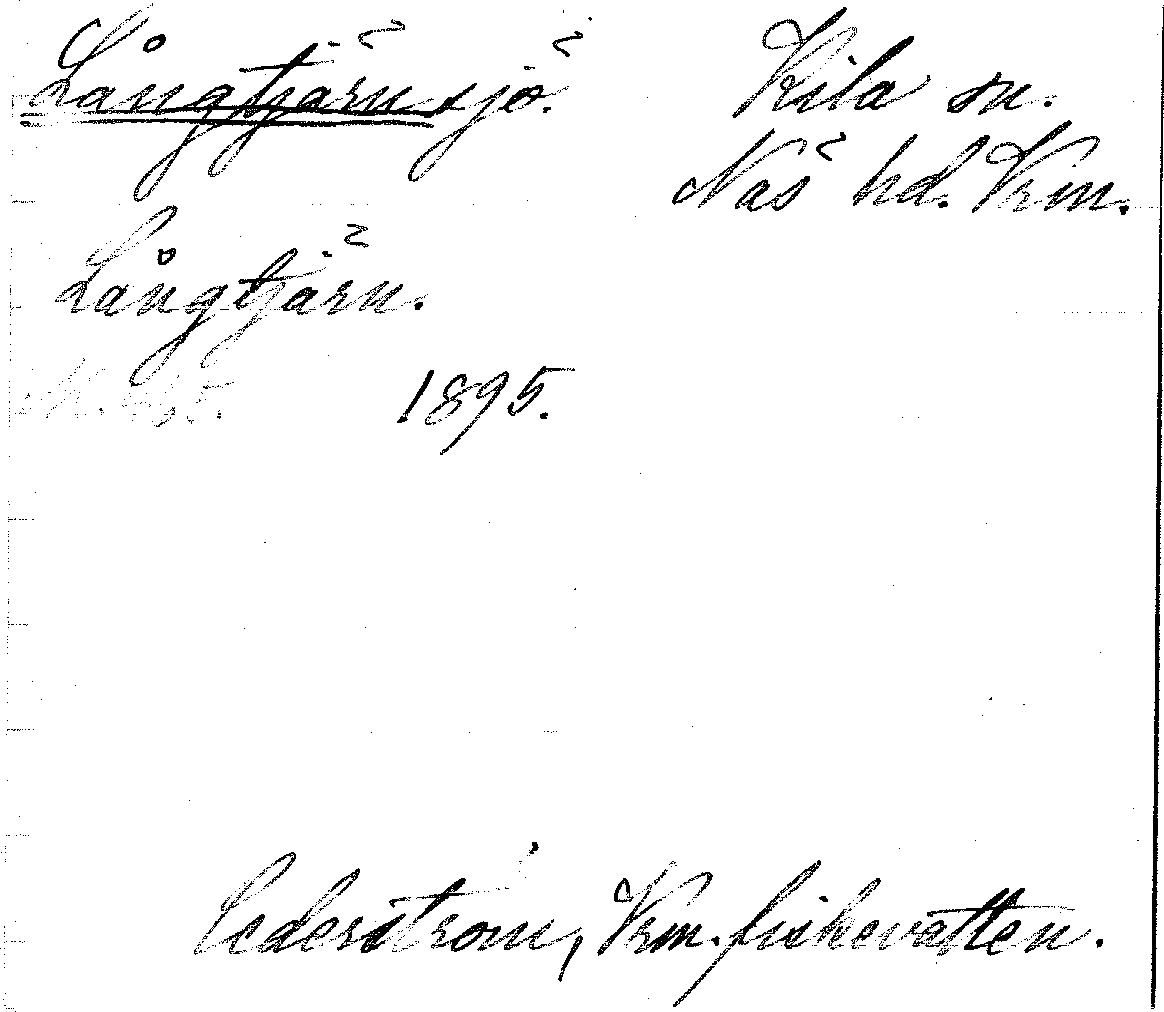 Långtjärn sjö. Kila sn.
Näs hd. Vrm.
Långtjärn.
1895.
Cederström, Vrm. fiskevatten.